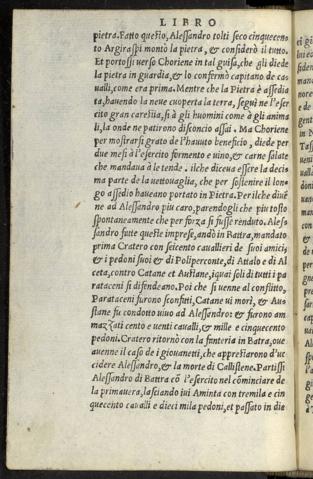 LIBRO
pietra. Fatto questo, Alessandro tolti seco cinquecen
to Argiraspi montò la pietra, & considerò il tutto.
Et portossi verso Choriene in tal guisa, che gli diede
la pietra in guardia, & lo confermò capitano de ca
ualli, come era prima. Mentre che la Pietra è assedia
ta, hauendo la neue cuoperta la terra, seguì ne l'eser
cito gran carestia, sì à gli huomini come à gli anima
li, la onde ne patirono disconcio assai. Ma Choriene
per mostrarsi grato de l'hauuto beneficio, diede per
due mesi à l'esercito formento e uino, & carne salate
che mandaua à le tende. ilche diceua essere la deci
ma parte de la uettouaglia, che per sostenire il lon
go assedio haueano portato in Pietra. Per ilche diuẽ
ne ad Alessandro più caro, parendogli che piu tosto
spontaneamente che per forza si fusse renduto. Ales
sandro fatte queste imprese, andò in Battra, mandato
prima Cratero con seicento cauallieri de suoi amici,
& i pedoni suoi & di Poliperconte, di Attalo e di Al
ceta, contro Catane et Austane, iquai soli di tutti i pa
rataceni si difendeano. Poi che si uenne al conflitto,
Parataceni furono sconfitti, Catane ui morì, & Aus
stane fu condotto uiuo ad Alessandro: & furono am
mazzati cento e uenti caualli, & mille e cinquecento
pedoni. Cratero ritornò con la fanteria in Batra, oue
auenne il caso de i giouanetti, che apprestarono d'uc
cidere Alessandro, & la morte di Callistene. Partissi
Alessandro di Battra cõ l'esercito nel cõminciare de
la primauera, lasciando iui Aminta con tremila e cin
quecento caualli e dieci mila pedoni, et passato in die